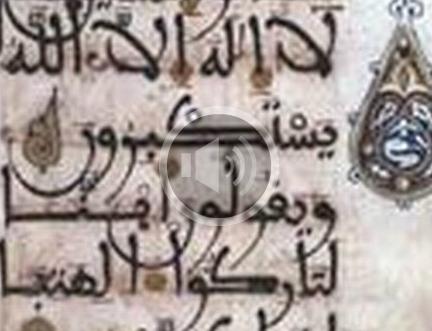 لا اله الا الله
يستكبرون
ويقولون اىنا
لتاركوا الهتنا